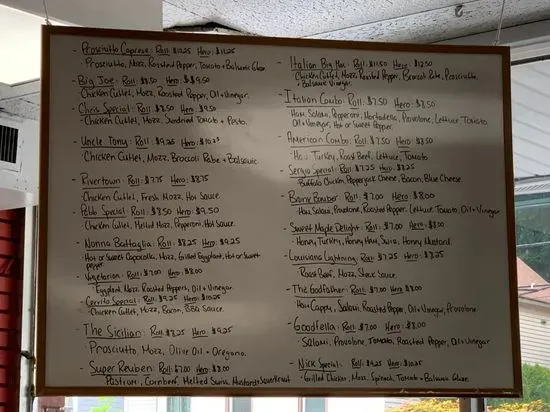 - Prosciutto Caprese: Roll $10.25 Hero: $11.25
Prosciutto, Mozz, Roasted Pepper, Tomato + Balsamic Glaze
- Big Joe: Roll: $8.50 Hero: $9.50
Chicken Cutlet, Mozz, Roasted Pepper, Oil + Vinegar.
- Chris Special: Roll: $8.50 Hero: $9.50
- Chicken Cutlet, Mozz, Sundried Tomato + Pesto.
- Uncle Tony: Roll: $9.25 Hero: $10.25
Chicken Cutlet, Mozz, Broccoli Rabe + Balsamic
- Rivertown: Roll: $7.75 Hero: $8.75
Chicken Cutlet, Fresh Mozz, Hot Sauce
- Special: Roll: $8.50 Hero: $9.50
Chicken Cutlet, Melted Mozz, Pepperoni, Hot Sauce.
- Nonna Battaglia: Roll: $8.25 Hero: $9.25
Hot or Sweet Capicolla, Mozz, Grilled Eggplant, Hot or Sweet
pepper.
- Vegetarian: Roll: $7.00 Hero: $8.00
Eggplant, Mozz, Roasted Peppers, Oil + Vinegar
- Cerrito Special: Roll: $9.25 Hero: $10.25
- Chicken Cutlet, Mozz, Bacon, BBQ Sauce.
- The Sicilian: Roll: $8.25 Hero: $9.25
Prosciutto, Mozz, Olive Oil + Oregano.
- Super Reuben: Roll: $7.00 Hero: $8.00
Pastrami, Cornbeef, Melted Swiss, Mustard + Sauerkraut
- Italian Big Mac: Roll: $11.50 Hero: $12.50
Chicken Cutlet, Mozz, Roasted Pepper, Broccoli Rabe, Prosciutto,
+ Balsamic Vinegar.
- Italian Combo: Roll: $7.50 Hero: $8.50
Ham, Salami, Pepperoni, Mortadella, Provolone, Lettuce Tomato
Oil + Vinegar, Hot or Sweet Pepper
- American Combo: Roll: $7.50 Hero: $8.50
Ham, Turkey, Roast Beef, Lettuce, Tomato
- Sergio Special: Roll: $7.25 Hero: $8.25
- Buffalo Chicken, Pepperjack Cheese, Bacon, Blue Cheese.
- Bronx Bomber: Roll: $7.00 Hero: $8.00
Ham, Salami, Provolone, Roasted Pepper, Lettuce Tomato, Oil + Vinegar
- Sweet Maple Delight: Roll: $7.00 Hero: $8.00
- Honey Turkey, Honey Ham, Swiss, Honey Mustard.
- Louisiana Lightning: Roll: $7.25 Hero: $8.25
- Roast Beef, Mozz, Steak Sauce.
- The Godfather: Roll: $7.00 Hero: $8.00
- Hot Cappy, Salami, Roasted Pepper, Oil + Vinegar, Provolone
- Goodfella: Roll: $7.00 Hero: $8.00
- Salami, Provolone, Tomato, Roasted Pepper, Oil + Vinegar
- Nick Special: Roll: $9.25 Hero: $10.25
- Grilled Chicken, Mozz, Spinach, Tomato + Balsamic Glaze